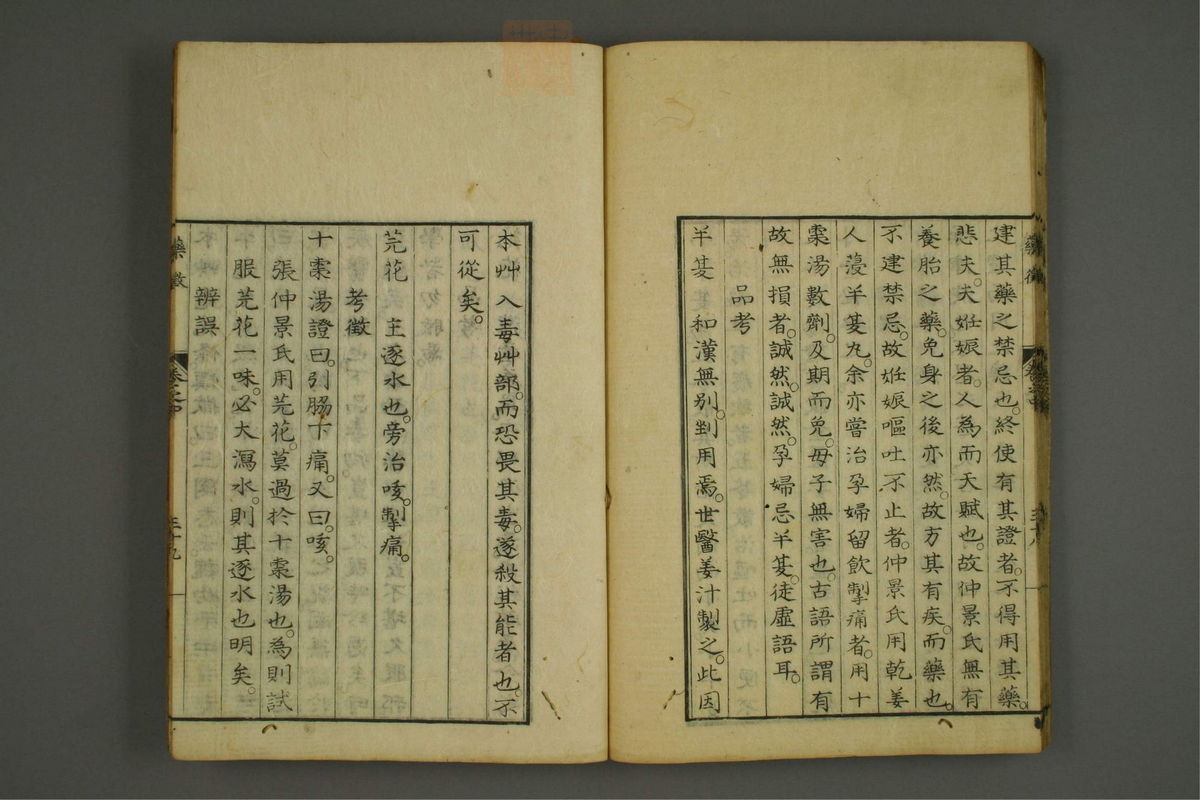 建其藥之禁忌也。終使有其證者。不得用其藥。
悲夫。夫妊娠者。人為而天賦也。故仲景氏無有
養胎之藥。免身之後亦然。故方其有疾。而藥也。
不建禁忌。故妊娠嘔吐不止者。仲景氏用乾姜
人蓡半夏丸。余亦嘗治孕婦留飲掣痛者。用十
棗湯數劑。及期而免。母子無害也。古語所謂有
故無損者。誠然。誠然。孕婦忌半夏。徒虛語耳。
品考
半夏 和漢無別。剉用焉。世醫姜汁製之。此因
藥徵 卷之中 三十八
本艸入毒艸部。而恐畏其毒。遂殺其能者也。不
可從矣。
芫花 主逐水也。旁治咳。掣痛。
考徵
十棗湯證曰。引脇下痛。又曰。咳。
張仲景氏用芫花。莫過於十棗湯也。為則試
服芫花一味。必大瀉水。則其逐水也明矣。
辨誤
藥徵 卷之中 三十九